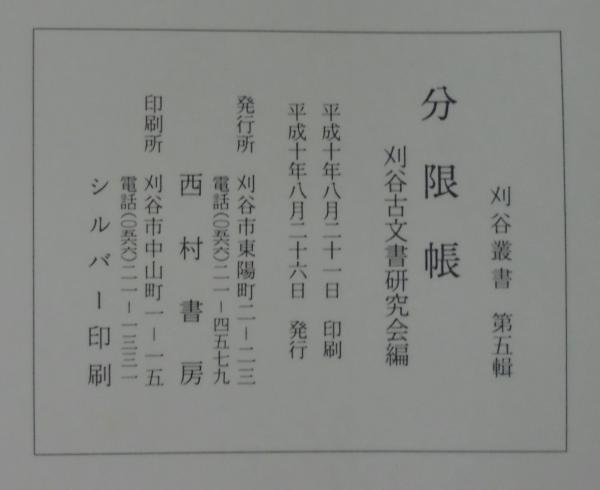 刈谷叢書　第五輯
分限帳
刈谷古文書研究会編
平成十年八月二十一日　印刷
平成十年八月二十六日　発行
発行所　刈谷市東陽町二－二三
電話(〇五六六)二一－四五七九
西村書房
印刷所　刈谷市中山町一－一五
電話(〇五六六)二一－一三三一
シルバー印刷